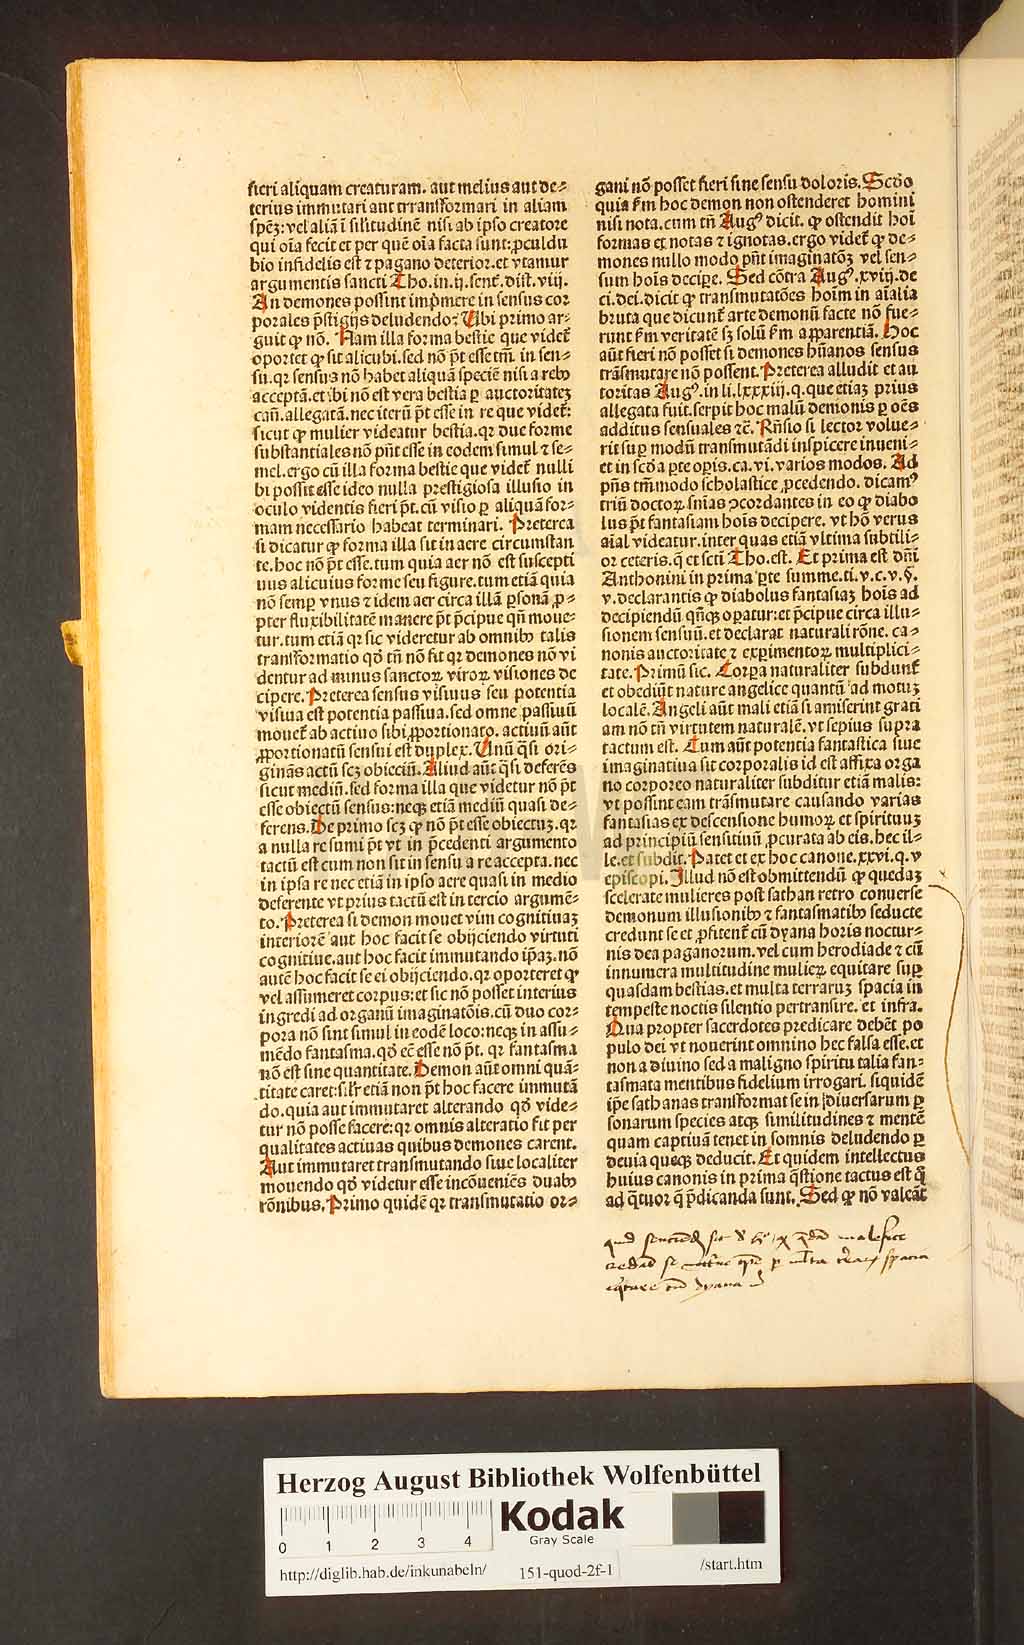 fieri aliquam creaturam. aut melius aut de⸗
terius immutari aut trransformari in aliam
spēȝ: vel aliā ī silitudinē nisi ab ipso creatore
qui oīa fecit et per quē oīa facta sunt: ꝓculdu
bio infidelis est ⁊ pagano deterior. et vtamur
argumentis sancti Tho. in. ij. senť. dist. viij.
An demones possint imp̄mere in sensus cor
porales p̄stigijs deludendo: Ubi primo ar⸗
guit ꝙ nō. Nam illa forma bestie que videť
oportet ꝙ sit alicubi. sed nō p̄t esse tm̄. in sen⸗
su. qꝛ sensus nō habet aliquā speciē nisi a rebꝰ
acceptā. et ibi nō est vera bestia ꝑ auctoritateȝ
cań. allegatā. nec iterū p̄t esse in re que videť:
sicut ꝙ mulier videatur bestia. qꝛ due forme
substantiales nō pn̄t esse in eodem simul ⁊ se⸗
mel. ergo cū illa forma bestie que videť nulli
bi possit esse ideo nulla prestigiosa illusio in
oculo videntis fieri p̄t. cū visio ꝑ aliquā for⸗
mam necessario habeat terminari. Preterea
si dicatur ꝙ forma illa sit in aere circumstan
te. hoc nō p̄t esse. tum quia aer nō est suscepti
uus alicuius forme seu figure. tum etiā quia
nō semꝑ vnus ⁊ idem aer circa illā ꝑsonā ꝓ⸗
pter fluxibilitatē manere p̄t p̄cipue qn̄ moue⸗
tur. tum etiā qꝛ sic videretur ab omnibꝰ talis
transformatio qđ tn̄ nō fit qꝛ demones nō vi
dentur ad minus sanctoꝝ viroꝝ visiones de
cipere. Preterea sensus visiuus seu potentia
visiua est potentia passiua. sed omne passiuū
mouet ab actiuo sibi ꝓportionato. actiuū aūt
ꝓportionatū sensui est duplex. Unū q̄si ori⸗
ginās actū scȝ obiectū. Aliud aūt q̄si deferēs
sicut mediū. sed forma illa que videtur nō p̄t
esse obiectū sensus: neqꝫ etiā mediū quasi de⸗
ferens. De primo scȝ ꝙ nō p̄t esse obiectuȝ. qꝛ
a nulla re sumi p̄t vt in p̄cedenti argumento
tactū est cum non sit in sensu a re accepta. nec
in ipsa re nec etiā in ipso aere quasi in medio
deferente vt prius tactū est in tercio argumē⸗
to. Preterea si demon mouet vim cognitiuaȝ
interiorē aut hoc facit se obijciendo virtuti
cognitiue. aut hoc facit immutando ip̄aȝ. nō
autē hoc facit se ei obijciendo. qꝛ oporteret ꝙ
vel assumeret corpus: et sic nō posset interius
ingredi ad organū imaginatōis. cū duo cor⸗
pora nō sint simul in eodē loco: neqꝫ in assu⸗
mēdo fantasma. qđ eē esse nō p̄t. qꝛ fantasma
nō est sine quantitate. Demon aūt omni quā⸗
titate caret: silr etiā non p̄t hoc facere immutā
do. quia aut immutaret alterando qđ vide⸗
tur nō posse facere: qꝛ omnis alteratio fit per
qualitates actiuas quibus demones carent.
Aut immutaret transmutando siue localiter
mouendo qđ videtur esse incōueniēs duabꝰ
rōnibus. Primo quidē qꝛ transmutatio or⸗
gani nō posset fieri sine sensu doloris. Scđo
quia ẜm hoc demon non ostenderet homini
nisi nota. cum tn̄ Augꝰ dicit. ꝙ ostendit hoī
formas et notas ⁊ ignotas. ergo videť ꝙ de⸗
mones nullo modo pn̄t imaginatōȝ vel sen⸗
sum hoīs decipe. Sed cōtra Augꝰ. xviij. de
ci. dei. dicit ꝙ transmutatōes hoīm in aīalia
bruta que dicunť arte demonū facte nō fue⸗
runt ẜm veritatē sȝ solū ẜm apparentiā. Hoc
aūt fieri nō posset si demones hūanos sensus
trāsmutare nō possent. Preterea alludit et au
toritas Augꝰ. in li. lxxxiij. q. que etiaȝ prius
allegata fuit. serpit hoc malū demonis ꝑ oēs
additus sensuales ⁊c̄. Rn̄sio si lector volue⸗
rit suꝑ modū transmutādi inspicere inueni⸗
et in scđa ꝑte oꝑis. ca. vi. varios modos. Ad
pn̄s tm̄ modo scholastice ꝓcedendo. dicamꝰ
triū doctoꝝ sn̄ias ꝯcordantes in eo ꝙ diabo
lus p̄t fantasiam hoīs decipere. vt hō verus
aīal videatur. inter quas etiā vltima subtili⸗
or ceteris. q̄ et scti Tho. est. Et prima est dn̄i
Anthonini in prima ꝑte summe. ti. v. c. v. §.
v. declarantis ꝙ diabolus fantasiaȝ hoīs ad
decipiendū qn̄qꝫ oꝑatur: et p̄cipue circa illu⸗
sionem sensuū. et declarat naturali rōne. ca⸗
nonis auctoritate ⁊ exꝑimentoꝝ multiplici⸗
tate. Primū sic. Corꝑa naturaliter subdunť
et obediūt nature angelice quantū ad motuȝ
localē. Angeli aūt mali etiā si amiserint grati
am nō tn̄ virtutem naturalē. vt sepius supra
tactum est. Cum aūt potentia fantastica siue
imaginatiua sit corporalis id est affixa orga
no corporeo naturaliter subditur etiā malis:
vt possint eam trāsmutare causando varias
fantasias ex descensione humoꝝ et spirituuȝ
ad principiū sensitiuū ꝓcurata ab eis. hec il⸗
le. et subdit. Patet et ex hoc canone. xxvi. q. v
episcopi. Illud nō est obmittendū ꝙ quedaȝ
scelerate mulieres post sathan retro conuerse
demonum illusionibꝰ ⁊ fantasmatibꝰ seducte
credunt se et ꝓfitenť cū dyana horis noctur⸗
nis dea paganorum. vel cum herodiade ⁊ cū
innumera multitudine mulieꝝ equitare suꝑ
quasdam bestias. et multa terraruȝ spacia in
tempeste noctis silentio pertransire. et infra.
Qua propter sacerdotes predicare debēt po
pulo dei vt nouerint omnino hec falsa esse. et
non a diuino sed a maligno spiritu talia fan⸗
tasmata mentibus fidelium irrogari. siquidē
ip̄e sathanas transformat se in diuersarum ꝑ
sonarum species atqꝫ similitudines ⁊ mentē
quam captiuā tenet in somnis deludendo ꝑ
deuia queqꝫ deducit. Et quidem intellectus
huius canonis in prima q̄stione tactus est q̄
ad q̄tuor q̄ p̄dicanda sunt. Sed ꝙ nō valeāt
Herzog August Bibliothek Wolfenbüttel
0 1 2 3 4
Kodak
Gray Scale
http://diglib.hab.de/inkunabeln/ 151-quod-2f-1 /start.htm